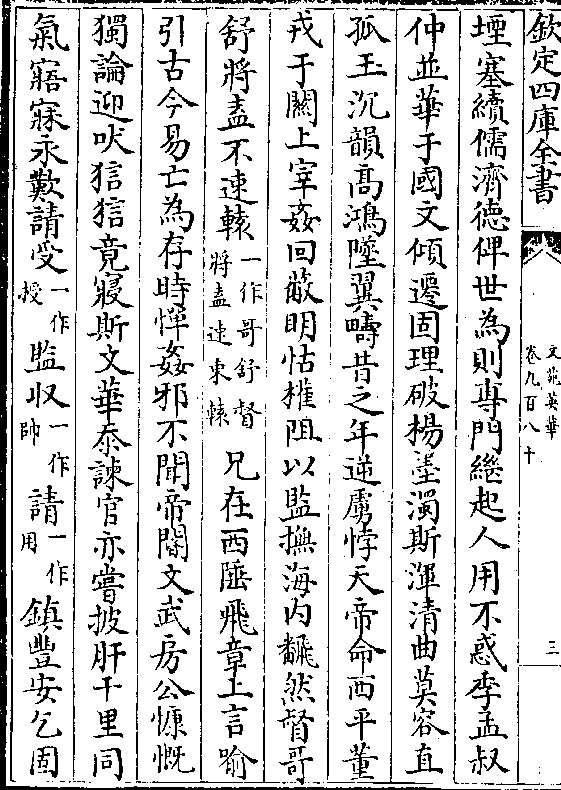 欽定四庫全書
文苑英華
卷九百八十
三
堙塞續儒濟德俾世為則專門繼起人用不惑季孟叔
仲並華于國文傾遷固理破楊墨濁斯渾清曲莫容直
孤玉沉韻高鴻墜翼疇昔之年逆虜悖天帝命西平董
戎于闗上宰姦回蔽眀怙權阻以監撫海内飜然督哥
舒將盍不速轅一作哥舒督將盍速東轅兄在西陲飛章上言喻
引古今易亡為存時憚姦邪不聞帝閽文武房公慷慨
獨論迎吠狺狺竟寢斯文華忝諫官亦嘗披肝千里同
氣寤寐永歎請受一作授監收一作帥請一作用鎮豐安乞固